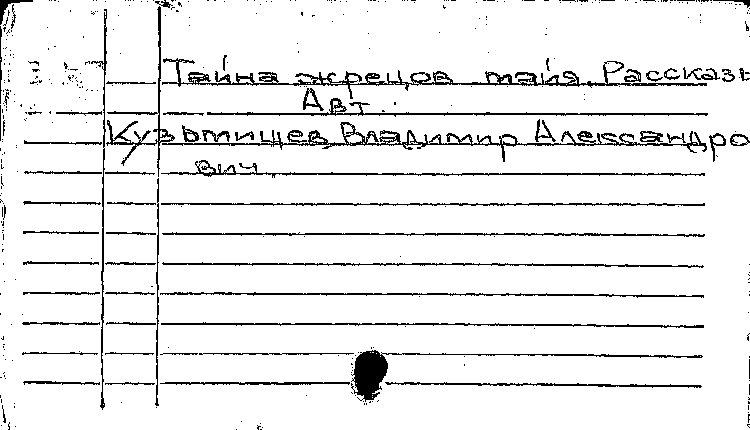 Тайна жрецов майя. Рассказы
Авт.:
Кузьмищев Владимир Александро
вич.